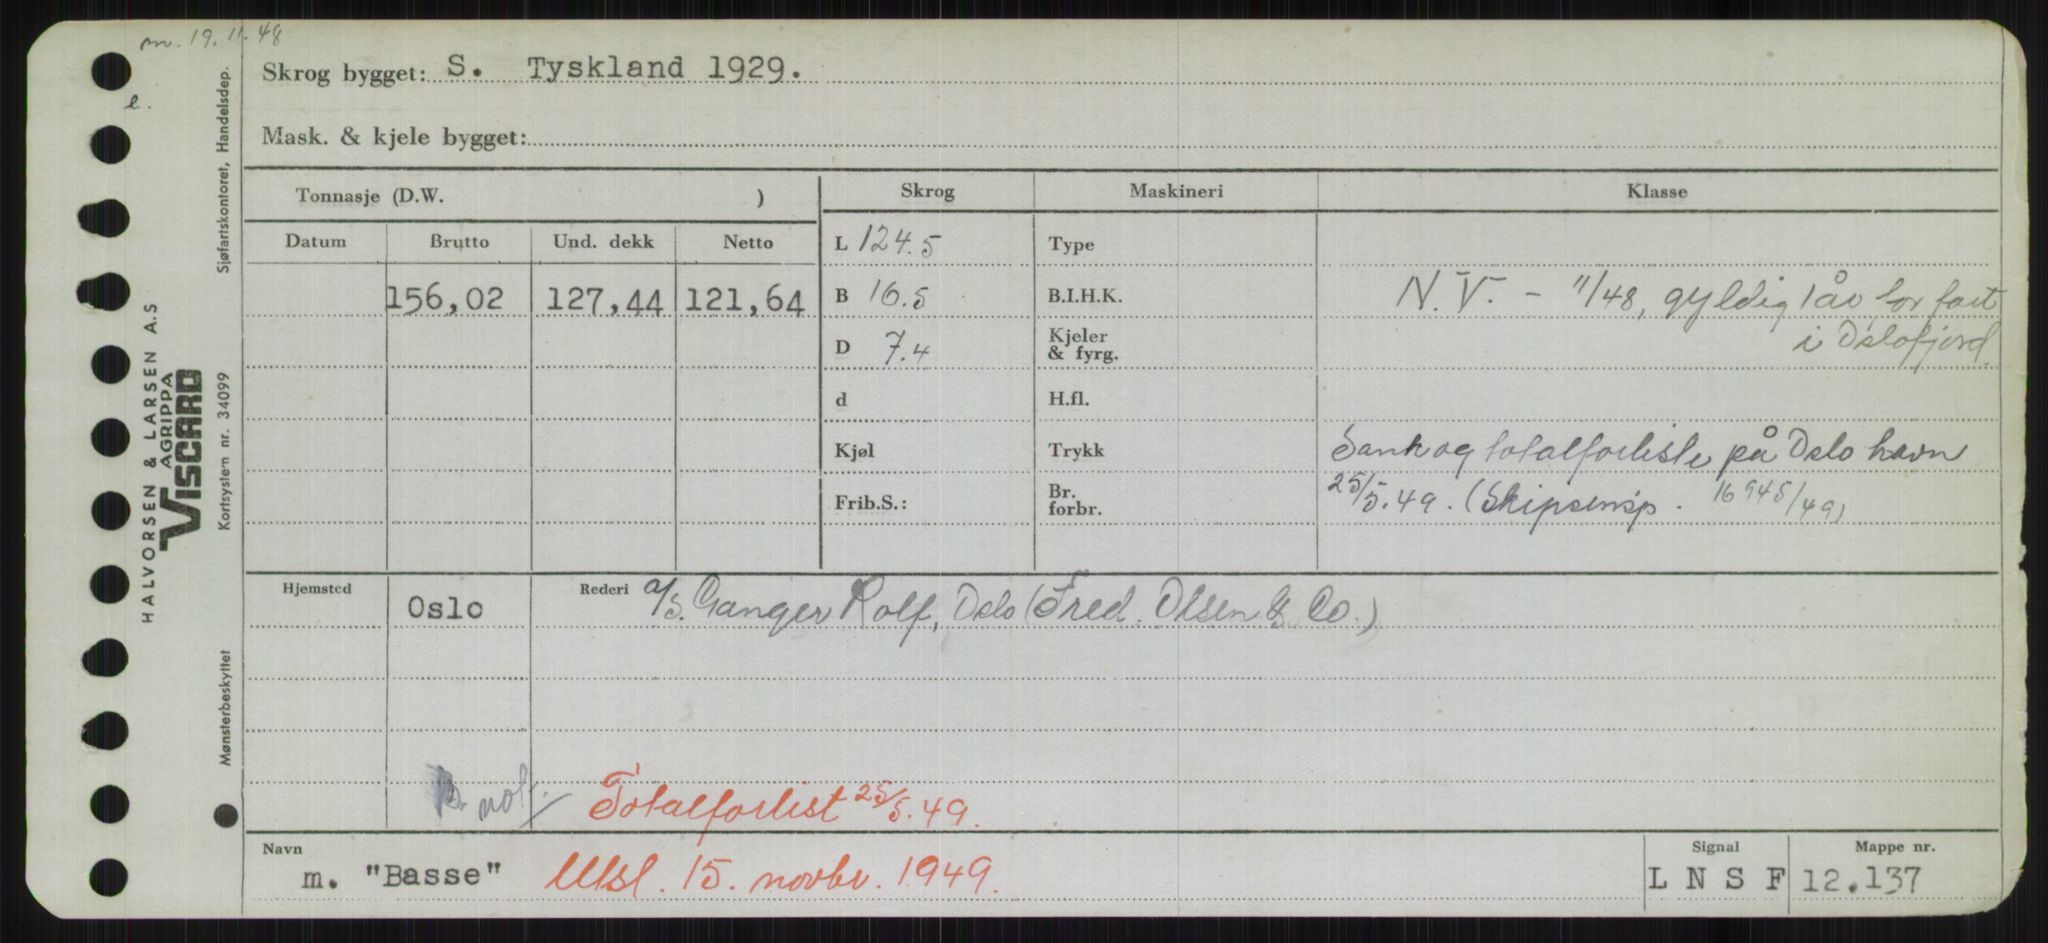 19.11.48
e.
Skrog bygget: S. Tyskland 1929.
Mask. & kjele bygget:
Tonnasje (D.W. )
Skrog
Maskineri
Klasse
Datum
Brutto
Und. dekk
Netto
156,02
127,44
121,64
L 124.5
B 16.5
D 7.4
d
Kjøl
Frib.S.:
Type
B.I.H.K.
Kjeler
& fyrg.
H.fl.
Trykk
Br.
forbr.
N.V. - 11/48, gyldig 1 år for fart
i Oslofjord.
Sank og totalforliste på Oslo havn
25/5.49. (Skipsinsp. 16945/49)
Hjemsted
Oslo
Rederi
A/S. Ganger Rolf, Oslo (Fred. Olsen & Co.)
not.
Totalforlist 25/5.49.
Navn
m. "Basse"
Utsl. 15. novbr. 1949.
Signal
L N S F
Mappe nr.
12.137
HALVORSEN & LARSEN A.S
AGRIPPA
VISCARD
Sjøfartskontoret, Handelsdep.
Kortsystem nr. 34099
Mønsterbeskyttet